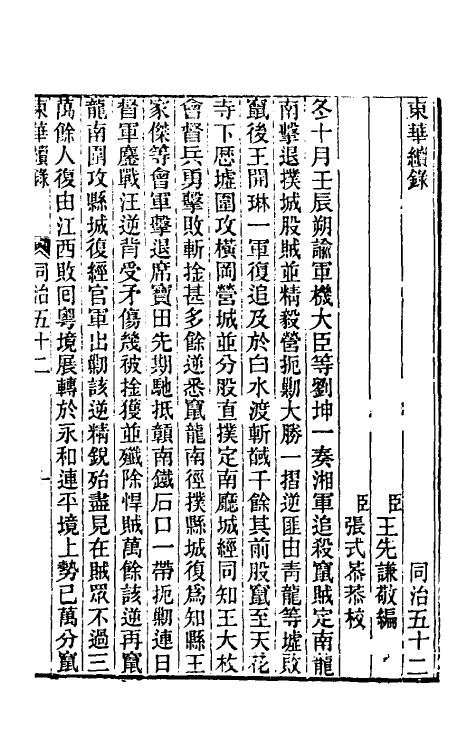 東華續錄 同治五十二
臣王先謙敬編
臣張式恭恭校
冬十月壬辰朔諭軍機大臣等劉坤一奏湘軍追殺竄賊定南龍
南擊退撲城股賊並精毅營扼勦大勝一摺逆匪由靑龍等墟敗
竄後王開琳一軍復追及於白水渡斬馘千餘其前股竄至天花
寺下歷墟圍攻橫岡營城並分股直撲定南廳城經同知王大枚
會督兵勇擊敗斬捦甚多餘逆悉竄龍南徑撲縣城復爲知縣王
家傑等會軍擊退席寶田先期馳抵贛南鐵石口一帶扼勦連日
督軍鏖戰汪逆背受矛傷幾被捦獲並殲除悍賊萬餘該逆再竄
龍南圍攻縣城復經官軍出勦該逆精銳殆盡見在賊眾不過三
萬餘人復由江西敗囘粵境展轉於永和連平境上勢已萬分竄
東華續錄 同治五十二 一